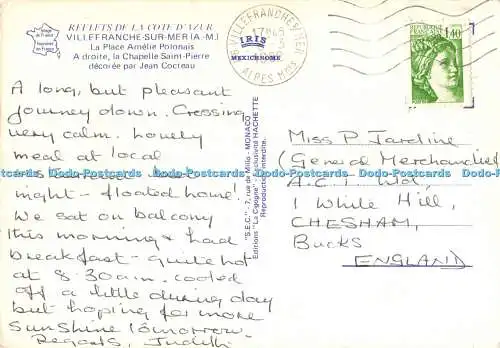 REFLETS DE LA COTE D'AZUR
VILLEFRANCHE-SUR-MER (A.-M.)
La Place Amélie Polonais
A droite, la Chapelle Saint-Pierre
décorée par Jean Cocteau
IRIS
MEXICHROME
VILLEFRANCHE S MER
ALPES Mmes
REPUBLIQUE FRANÇAISE
1,40
A long, but pleasant
journey down. Crossing
very calm. Lovely
meal at local
restaurant last
night - floated home!
We sat on balcony
this morning & had
breakfast - quite hot
at 8.30am. Cooled
off a little during day
but hoping for more
sunshine tomorrow.
Regards, Judith
"S.E.C." - 7, rue de Millo - MONACO
Editions "La Cigogne" - Exclusivité HACHETTE
Reproduction interdite.
Miss P Jardine
(General Merchandise)
A.C. Ltd,
1 White Hill,
CHESHAM,
Bucks
ENGLAND
Dodo-Postcards.com